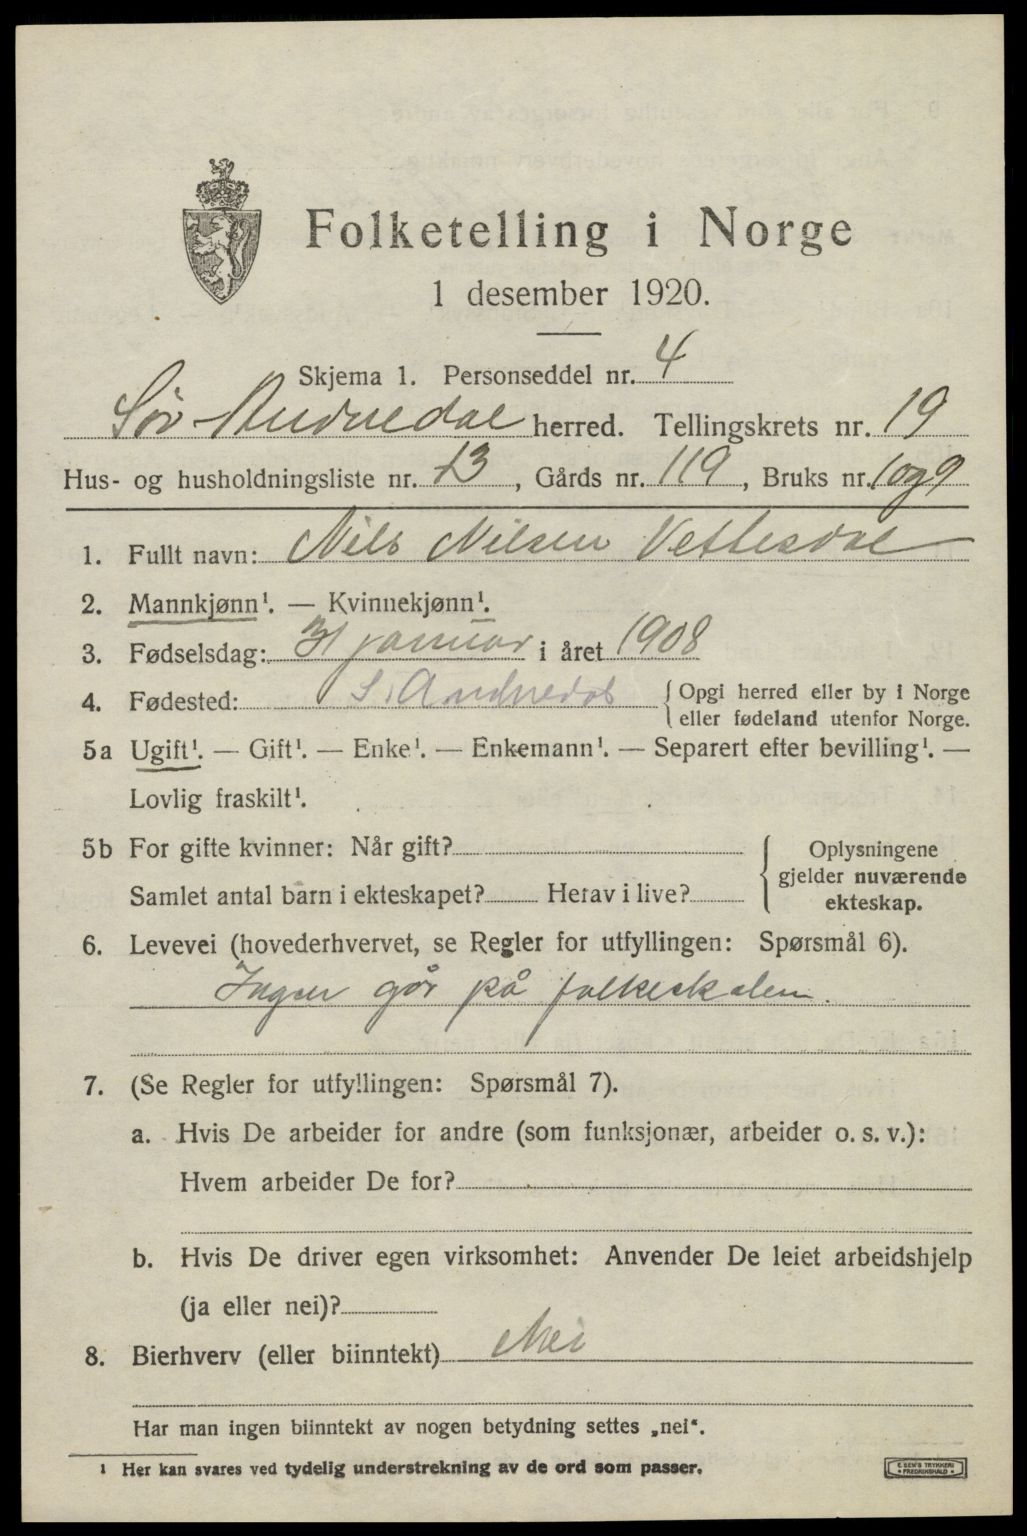 Folketelling i Norge
1 desember 1920.
Skjema 1. Personseddel nr. 4
Sør-Audnedal herred. Tellingskrets nr. 19
Hus- og husholdningsliste nr. 13, Gårds nr. 119, Bruks nr. 1 og 9
1. Fullt navn: Nils Nilsen Vettesdal
2. Mannkjønn¹. — Kvinnekjønn¹.
3. Fødselsdag: 31 januar i året 1908
4. Fødested: S. Audnedal {Opgi herred eller by i Norge
eller fødeland utenfor Norge.
5a Ugift¹. — Gift¹. — Enke¹. — Enkemann¹. — Separert efter bevilling¹. —
Lovlig fraskilt¹.
5b For gifte kvinner: Når gift?
Samlet antal barn i ekteskapet? Herav i live?
Oplysningene
gjelder nuværende
ekteskap.
6. Levevei (hovederhvervet, se Regler for utfyllingen: Spørsmål 6).
Ingen går på folkeskolen.
7. (Se Regler for utfyllingen: Spørsmål 7).
a. Hvis De arbeider for andre (som funksjonær, arbeider o. s. v.):
Hvem arbeider De for?
b. Hvis De driver egen virksomhet: Anvender De leiet arbeidshjelp
(ja eller nei)?
8. Bierhverv (eller biinntekt) Nei
Har man ingen biinntekt av nogen betydning settes „nei“.
¹ Her kan svares ved tydelig understrekning av de ord som passer.
E. SEM'S TRYKKERI
• FREDRIKSHALD •